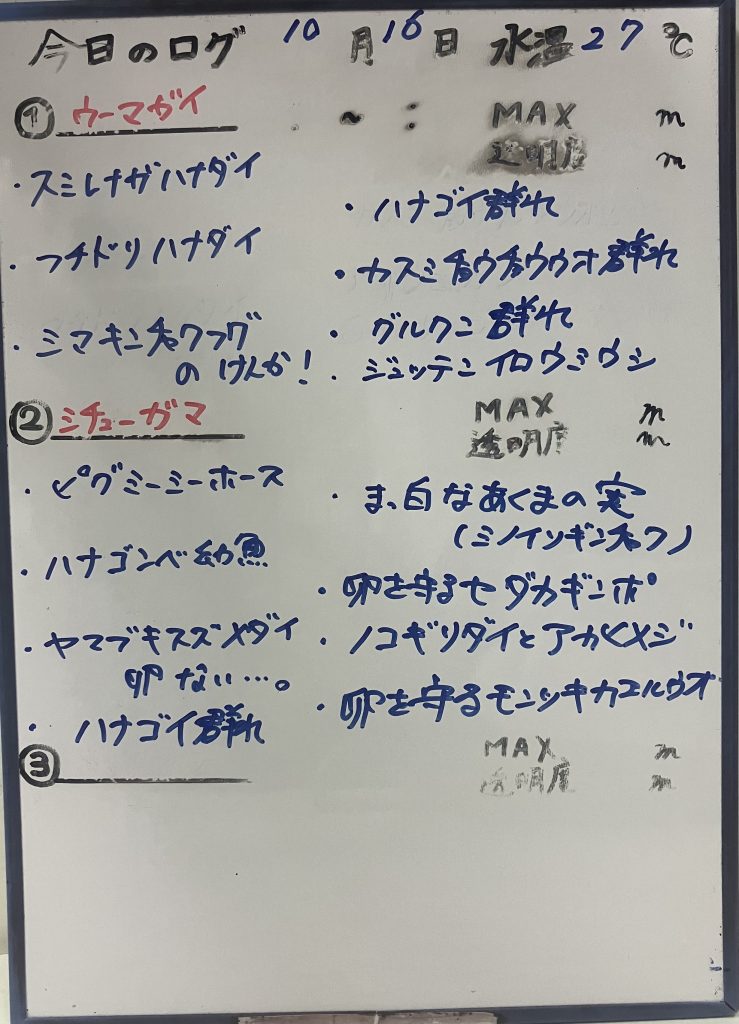 今日のログ 10月16日 水温27℃
① ウーマガイ ~ : MAX m
透明度 m
・スミレナガハナダイ
・フチドリハナダイ
・シマキンチャクフグ
のけんか!
・ハナゴイ群れ
・カスミチョウチョウウオ群れ
・グルクン群れ
・ジュッテンイロウミウシ
② シチューガマ MAX m
透明度 m
・ピグミーシーホース
・ハナゴンベ幼魚
・ヤマブキスズメダイ
卵ない…。
・ハナゴイ群れ
・まっ白なあくまの実
(ミノイソギンチャク)
・卵を守るセダカギンポ
・ノコギリダイとアカヒメジ
・卵を守るモンツキカエルウオ
③ MAX m
透明度 m